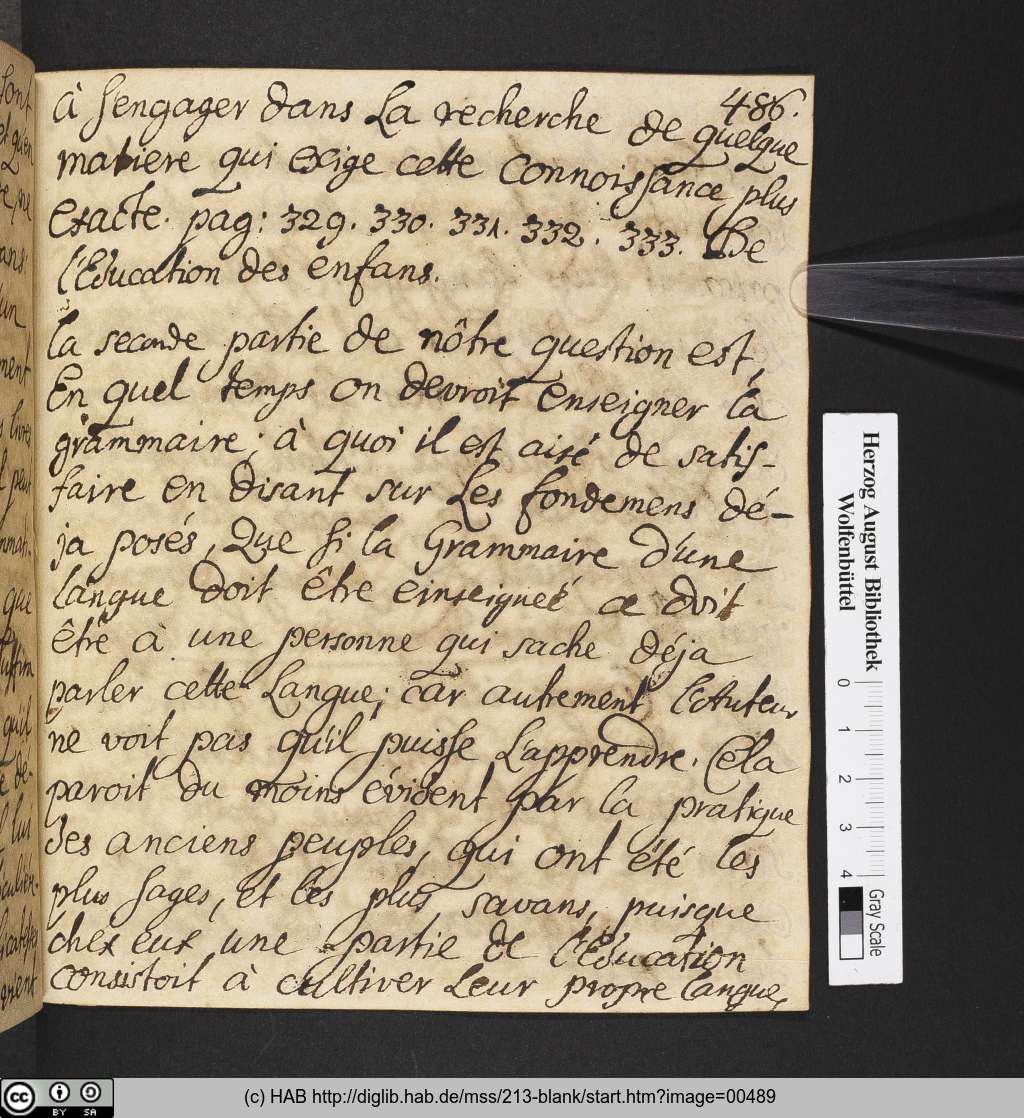 486.
à s'engager dans La recherche de quelque
matiere qui exige cette Connoissance plus
exacte. pag: 329. 330. 331. 332. 333. De
l'Education des enfans.
la seconde partie de nôtre question est,
En quel temps on devroit enseigner la
grammaire; à quoi il est aisé de satis-
faire en disant sur Les fondemens dé-
ja posés, Que si la Grammaire d'une
langue doit être einseigneé ce doit
être à une personne qui sache déja
parler cette Langue; car autrement l'Auteur
ne voit pas qu'il puisse L'apprendre. Cela
paroit du moins évident par la pratique
des anciens peuples, qui ont été les
plus sages, et les plus savans, puisque
chez eux une partie de l'Education
consistoit à cultiver Leur propre langue,
Herzog August Bibliothek
Wolfenbüttel
0 1 2 3 4
Gray Scale
(c) HAB http://diglib.hab.de/mss/213-blank/start.htm?image=00489
cc BY SA